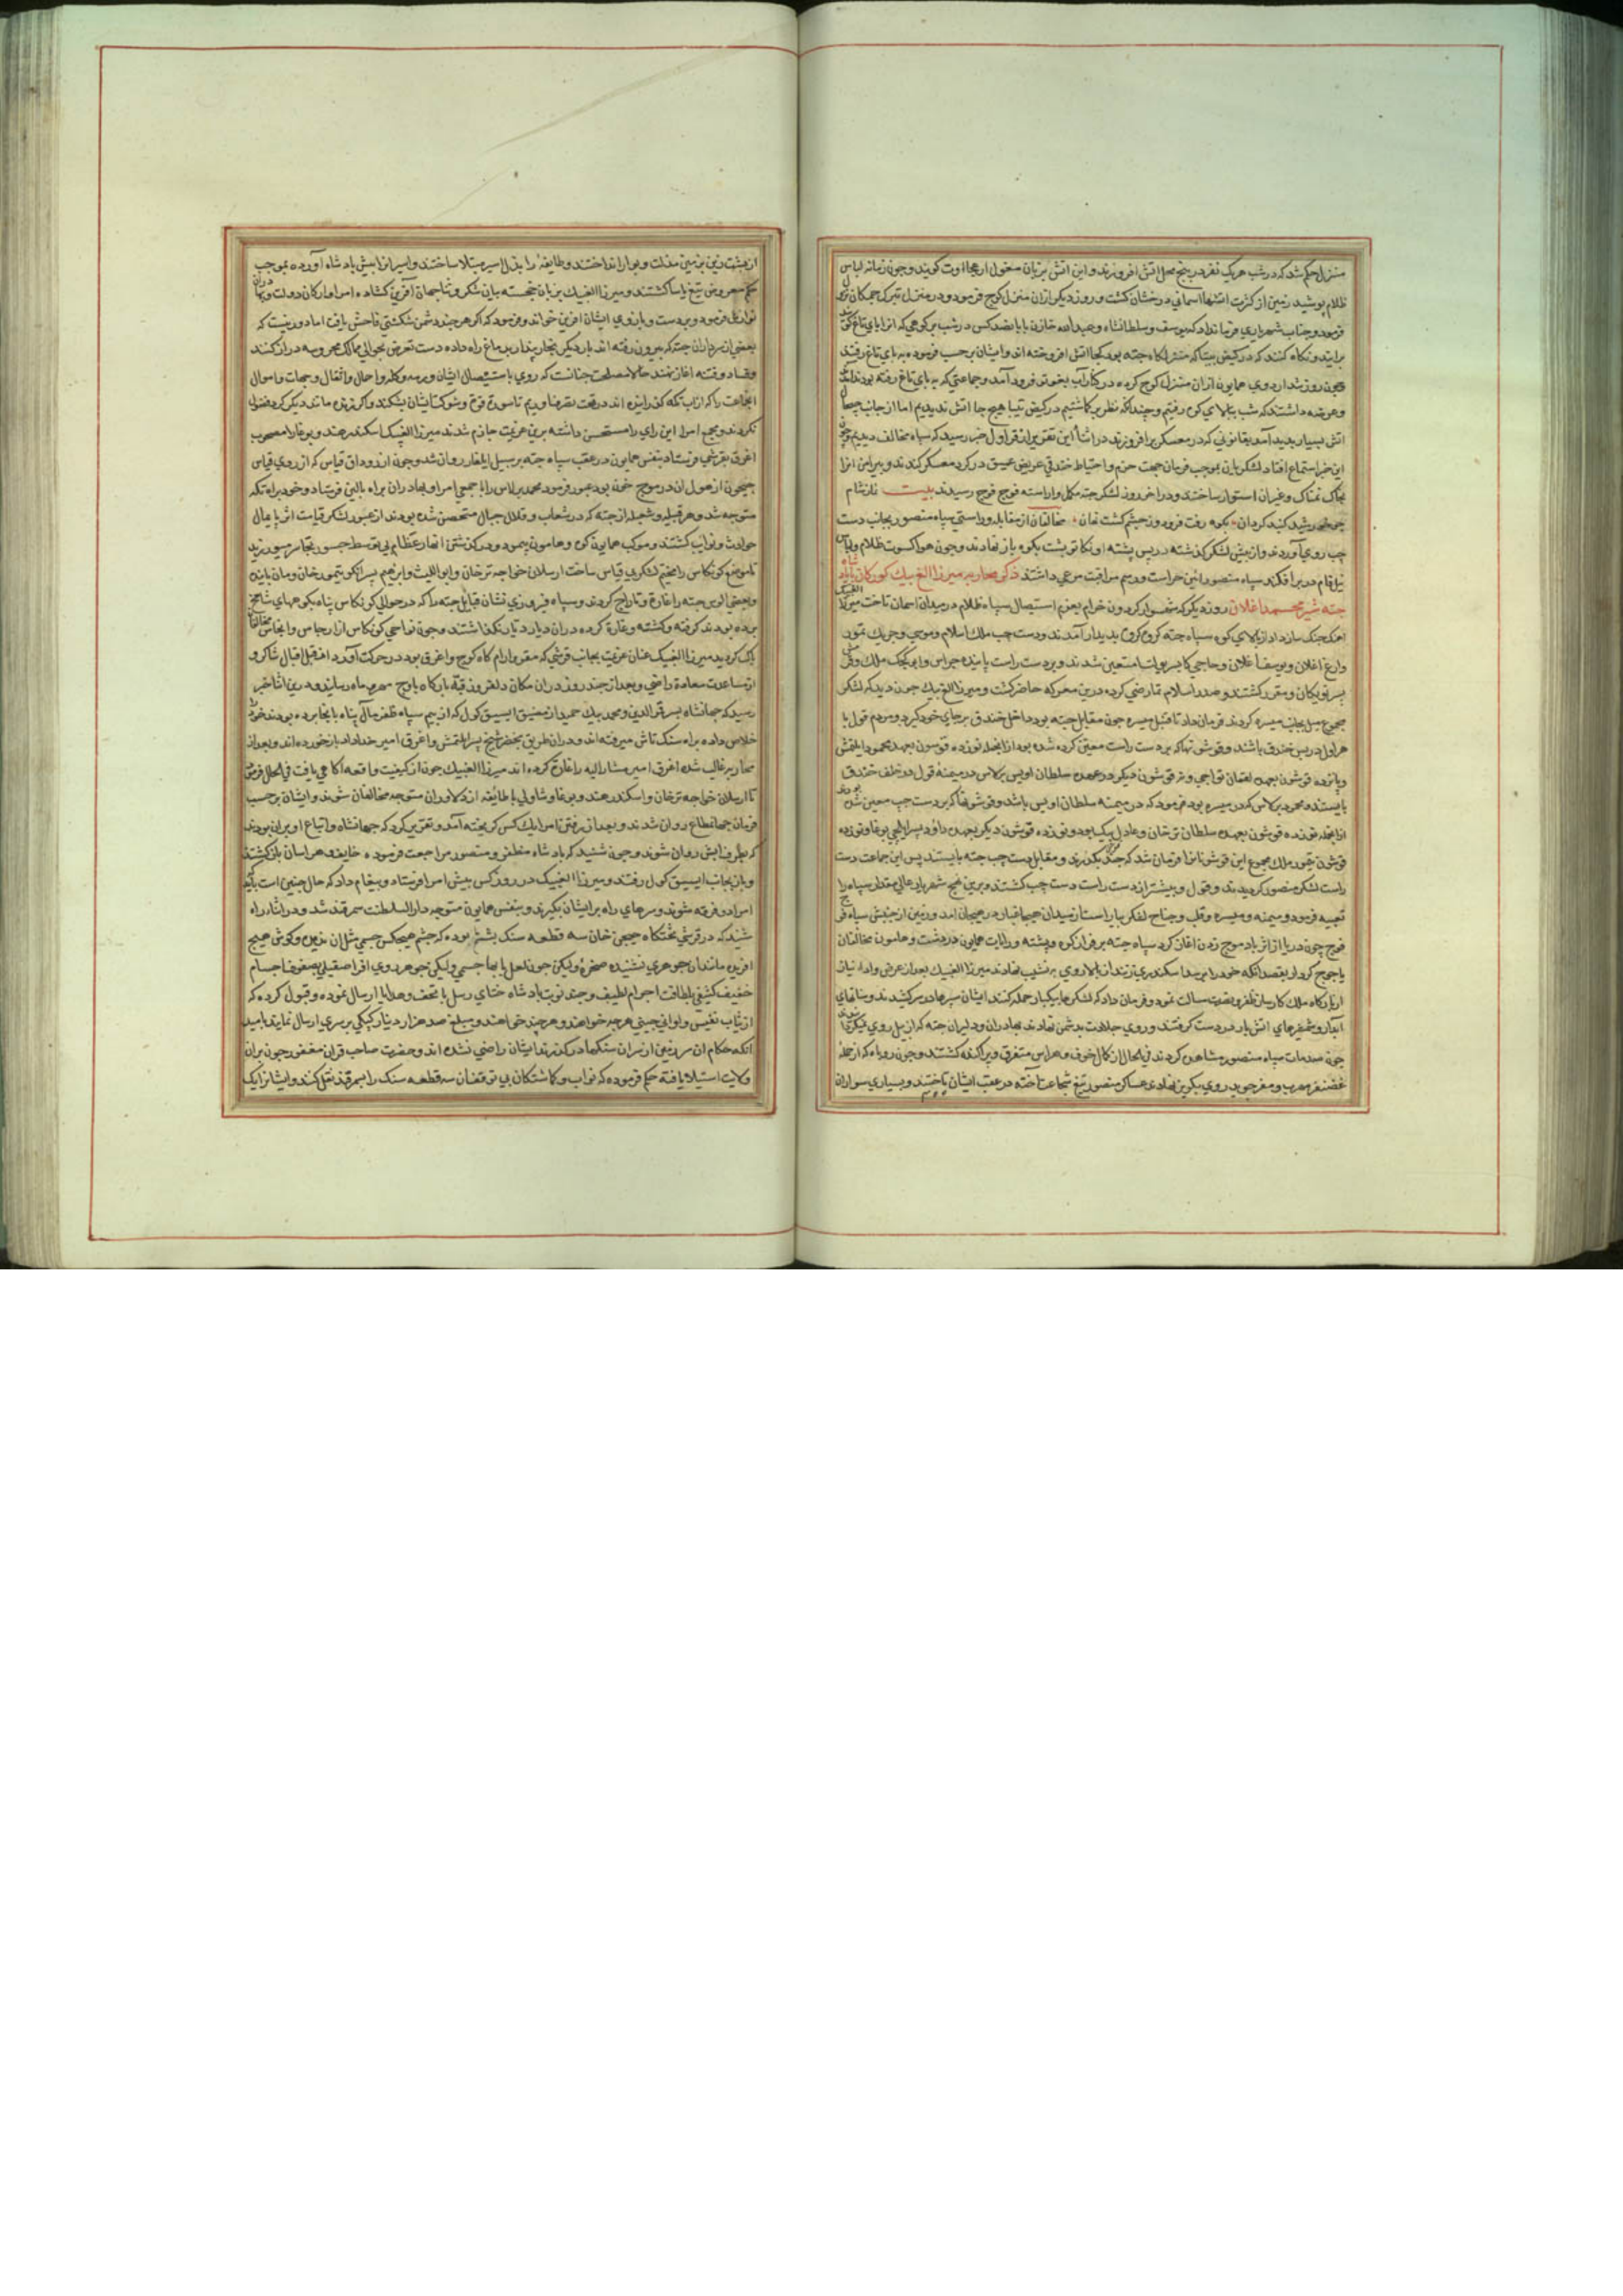 منزل حکم شد که در شب هر یک نفر در پنج محل آتش افروزند و این آتش بزبان مغول گویند و چون زمانه لباس
ظلام پوشید زمین از کثرت آتشها آسمانی درخشان گشت و روز دیگر ازان منزل کوچ فرمود و در منزل
فرمود و جناب شهریاری فرمانداد که یوسف و سلطانشاه و عبدالله خازن با پانصد کس در شب بر کوهی که انرا
برایند و نکاه کنند که در منزلکاه جته بود کجا آتش افروخته اند و ایشان بر حسب فرموده به بای تاغ رفتند
و چون روز شد اردوی همایون ازان منزل کوچ کرده در کنار آب فرود آمد و جماعتی که به بای تاغ رفته بودند
و عرضه داشتند که شب ببالای کوه رفتیم و چندانکه نظر بر کماشتیم در هیچ جا آتش ندیدیم اما از جانب
آتش بسیار بدید آمد بقانونی که در معسکر برافروزند در اثنا این تقریر از قراول خبر رسید که سپاه مخالف دیدیم و چون
این خبر استماع افتاد لشکریان بموجب فرمان جهت حزم و احتیاط خندقی عریض عمیق در کرد معسکر کندند و پیرامن انرا
بخاک نمناک و غیر ان استوار ساختند و در اخر روز لشکر جته مکمل و اراسته فوج فوج رسیدند بیت نماز شام
خورشید کنبد کردان بکوه رفت فرو وز چشم کشت نهان مخالفان از مقابله و راستی سپاه منصور بجانب دست
چپ روی آوردند و از پیش لشکر کذشته در پس پشته پشت بکوه باز نهادند و چون هوا کسوت ظلام و لباس
نیل فام در بر افکند سپاه منصور ائین حراست و رسم مراقبت مرعی داشتند ذکر محاربه میرزا الغ بیک کورکان با پادشاه
جته شیر محمد اغلان روز دیکر که شهسوار کردون خرام بعزم استیصال سپاه ظلام در میدان اسمان تاخت میرزا الغبیک
اهنک جنک ساز داد از بالای کوه سپاه جته کروه کروه بدیدار آمدند و دست چپ ملک اسلام و موسی و
اغلان و یوسف اغلان و حاجی متعین شدند و بر دست راست
و مقرر کشتند و صدر اسلام تمارضی کرده درین معرکه حاضر نکشت و میرزا الغ بیک چون دید که لشکر
مجموع میل بجانب میسره کردند فرمان داد تا میسره چون مقابل جته بود داخل خندق بر جای خود کیرد و مردم قول با
هراول در پس خندق باشند و قوشونها که بر دست راست معین کرده شده بود ازانجمله نوزده قوشون بعهد محمود
و پانزده قوشون بعهد لقمان تواجی و قوشون دیکر در عهده سلطان اویس برلاس در میمنه قول در خلف خندق
بایستند و محمود برلاس که در میسره بود فرمود که در میمنه سلطان اویس باشد و قوشونها که بر دست چپ معین شده بودند
ازانجمله نوزده قوشون بعهده سلطان ترخان و عادل بیک بود و نوزده قوشون دیکر بعهده داود و نوزده
قوشون ملک مجموع این قوشونانرا فرمان شد که بکذرند و مقابل دست چپ جته بایستند پس این جماعت دست
راست لشکر منصور کردیدند و قول و بیشتر از دست راست دست چپ کشتند و برین نهج شهریار عالی مقدار سپاه را
تعبیه فرمود و میمنه و میسره و قلب و جناح لشکر بیاراست از میدان هیجا غبار در هیجان امد و زمین از جنبش سپاه فوج
فوج چون دریا از اثر باد موج زدن اغاز کرد سپاه جته بر فراز کوه و پشته و رایات همایون در دشت و هامون مخالفان
یاجوج کردار بقصد انکه خود را بر سد اسکندری زنند از بالا روی به نشیب نهادند میرزا الغبیک بعد از عرض و اداء نیاز
از بارکاه ملک کارساز ظفر و نصرت مسالت نمود و فرمان داد که لشکرها بیکبار حمله کنند ایشان سپرها در سر کشیدند و سنانهای
ابدار و شمشیرهای اتش بار در دست کرفتند و روی جلادت بدشمن نهادند بهادران و دلیران جته که از پیل روی
چون صدمات سپاه منصور مشاهده کردند فی الحال از کمال خوف و هراس متفرق و پراکنده کشتند و چون روباه که از حمله
غضنفر مهرب و مفر جوید روی بکریز نهادند عساکر منصور تیغ شجاعت آخته در عقب ایشان تاختند و بسیاری سواران
از پشت زین بر زمین مذلت و بوار انداختند و طایفه را بذل اسیر مبتلا ساختند و اسیرانرا پیش پادشاه آورده بموجب
حکم معروض تیغ یاسا کشتند و میرزا الغبیک بزبان خجسته بیان شکر و ثنا جهان آفرین کشاده امرا و ارکان دولت
نوازش فرمود و بر دست و بازوی ایشان افرین خواند و فرمود که اکر هر چند دشمن شکستی فاحش یافت اما دور نیست که
بعضی از سرداران جته که بیرون رفته اند بار دیکر بخار پندار بدماغ راه داده دست تعرض بحوالی ممالک محروسه دراز کنند
و فساد و فتنه اغاز نهند حالا مصلحت چنانست که روی باستیصال ایشان و رمه و کله و احمال و اثقال و جهات و اموال
انجماعت را که از آب کذرانیده اند در تحت تصرف اوریم تا سوره قوت و شوکت ایشان بشکند و اکر زنده مانند دیکر کرد فضول
نکردند و جمیع امرا این رای را مستحسن داشته برین عزیمت جازم شدند میرزا الغبیک اسکندر هند و بوغا را مصحوب
اغرق بقرشی فرستاد بنفس همایون در عقب سپاه جته بر سبیل ایلغار روان شد و چون از رود اق قیاس که از روی قیاس
جیحون از هول ان در موج خون بود عبور فرمود محمد برلاس را با جمعی امرا و بهادران براه بالین فرستاد و خود براه تکه
متوجه شد و هر قبیله و شعبه از جته که در شعاب و قلال جبال متحصن شده بودند از عبور لشکر قیامت اثر پایمال
حوادث و نوایب کشتند و موکب همایون کوه و هامون پیمود و در کذشتن انهار عظام بی توسط جسور تجاسر میورزید
تا موضع کونکاس را مخیم لشکری قیاس ساخت ارسلان خواجه ترخان و ابواللیث و ابراهیم پسر ایکو تیمور خان و مان باینده
و بعضی الوس جته را غارت و تاراج کردند و سپاه فیروزی نشان قبایل جته را که در حوالی کونکاس پناه بکوههای شامخ
برده بودند کرفته و کشته و غارت کرده دران دیار دیار نکذاشتند و چون نواحی کونکاس از ارجاس و انجاس مخالفان
پاک کردید میرزا الغبیک عنان عزیمت بجانب قرشی که مقر و ارام کاه کوچ و اغرق بود در حرکت آورد از اقبال شاکر و
از مساعدت سعادت راضی و بعد از چند روز دران مکان دلفروز قبه بارکاه باوج مهر و ماه رسانید و درین اثنا خبر
رسید که جهانشاه پسر قمرالدین و محمد بیک حمید از مضیق ایسیق کول که از بیم سپاه ظفر مآل پناه بانجا برده بودند خود را
خلاص داده براه سنک تاش میرفته اند و دران طریق بخضر شیخ پسر ایلتمش و اغرق امیر خداداد باز خورده اند و بعد از
محاربه غالب شده اغرق امیر مشارالیه را غارت کرده اند میرزا الغبیک چون از کیفیت واقعه اکاهی یافت فی الحال فرمود
تا ارسلان خواجه ترخان و اسکندر هند و بوغا و شاه ولی با طایفه از دلاوران متوجه مخالفان شوند و ایشان بر حسب
فرمان جهانمطاع روان شدند و بعد از رفتن امرا یک کس کریخته آمد و تقریر کرد که جهانشاه و اتباع او بران بودند
که بطرف ایش روان شوند و چون شنید که پادشاه مظفر و منصور مراجعت فرموده خایف و هراسان بازکشتند
و باز بجانب ایسیق کول رفتند و میرزا الغبیک در روز کس پیش امرا فرستاد و پیغام داد که حال چنین است باید که
امرا دو فرقه شوند و سرهای راه بر ایشان بکیرند و بنفس همایون متوجه دار السلطنت سمرقند شد و در اثناء راه
شنید که در قرشی تختکاه جیجی خان سه قطعه سنک یشم بوده که چشم هیچکس جسمی مثل ان ندیده و کوش هیچ
افریده مانند ان جوهری نشنیده صخره ولیکن چون لعل با بها جسمی ولیکن جوهر
خفیف کثیفی بلطافت اجرام لطیف و چند نوبت پادشاه ختای رسل با تحف و هدایا ارسال نموده و قبول کرده که
از ثیاب نفیس و اوانی چینی هرچه خواهند و هر چند خواهند و مبلغ صد هزار دینار کپکی بر سری ارسال نماید بامید
انکه حکام ان سرزمین از سران سنکها درکذرند ایشان راضی نشده اند و حضرت صاحب قران مغفور چون بران
ولایت استیلا یافته حکم فرموده که نواب و کماشتکان بی توقفان سه قطعه سنک را بسمرقند نقل کنند و ایشانرا یک